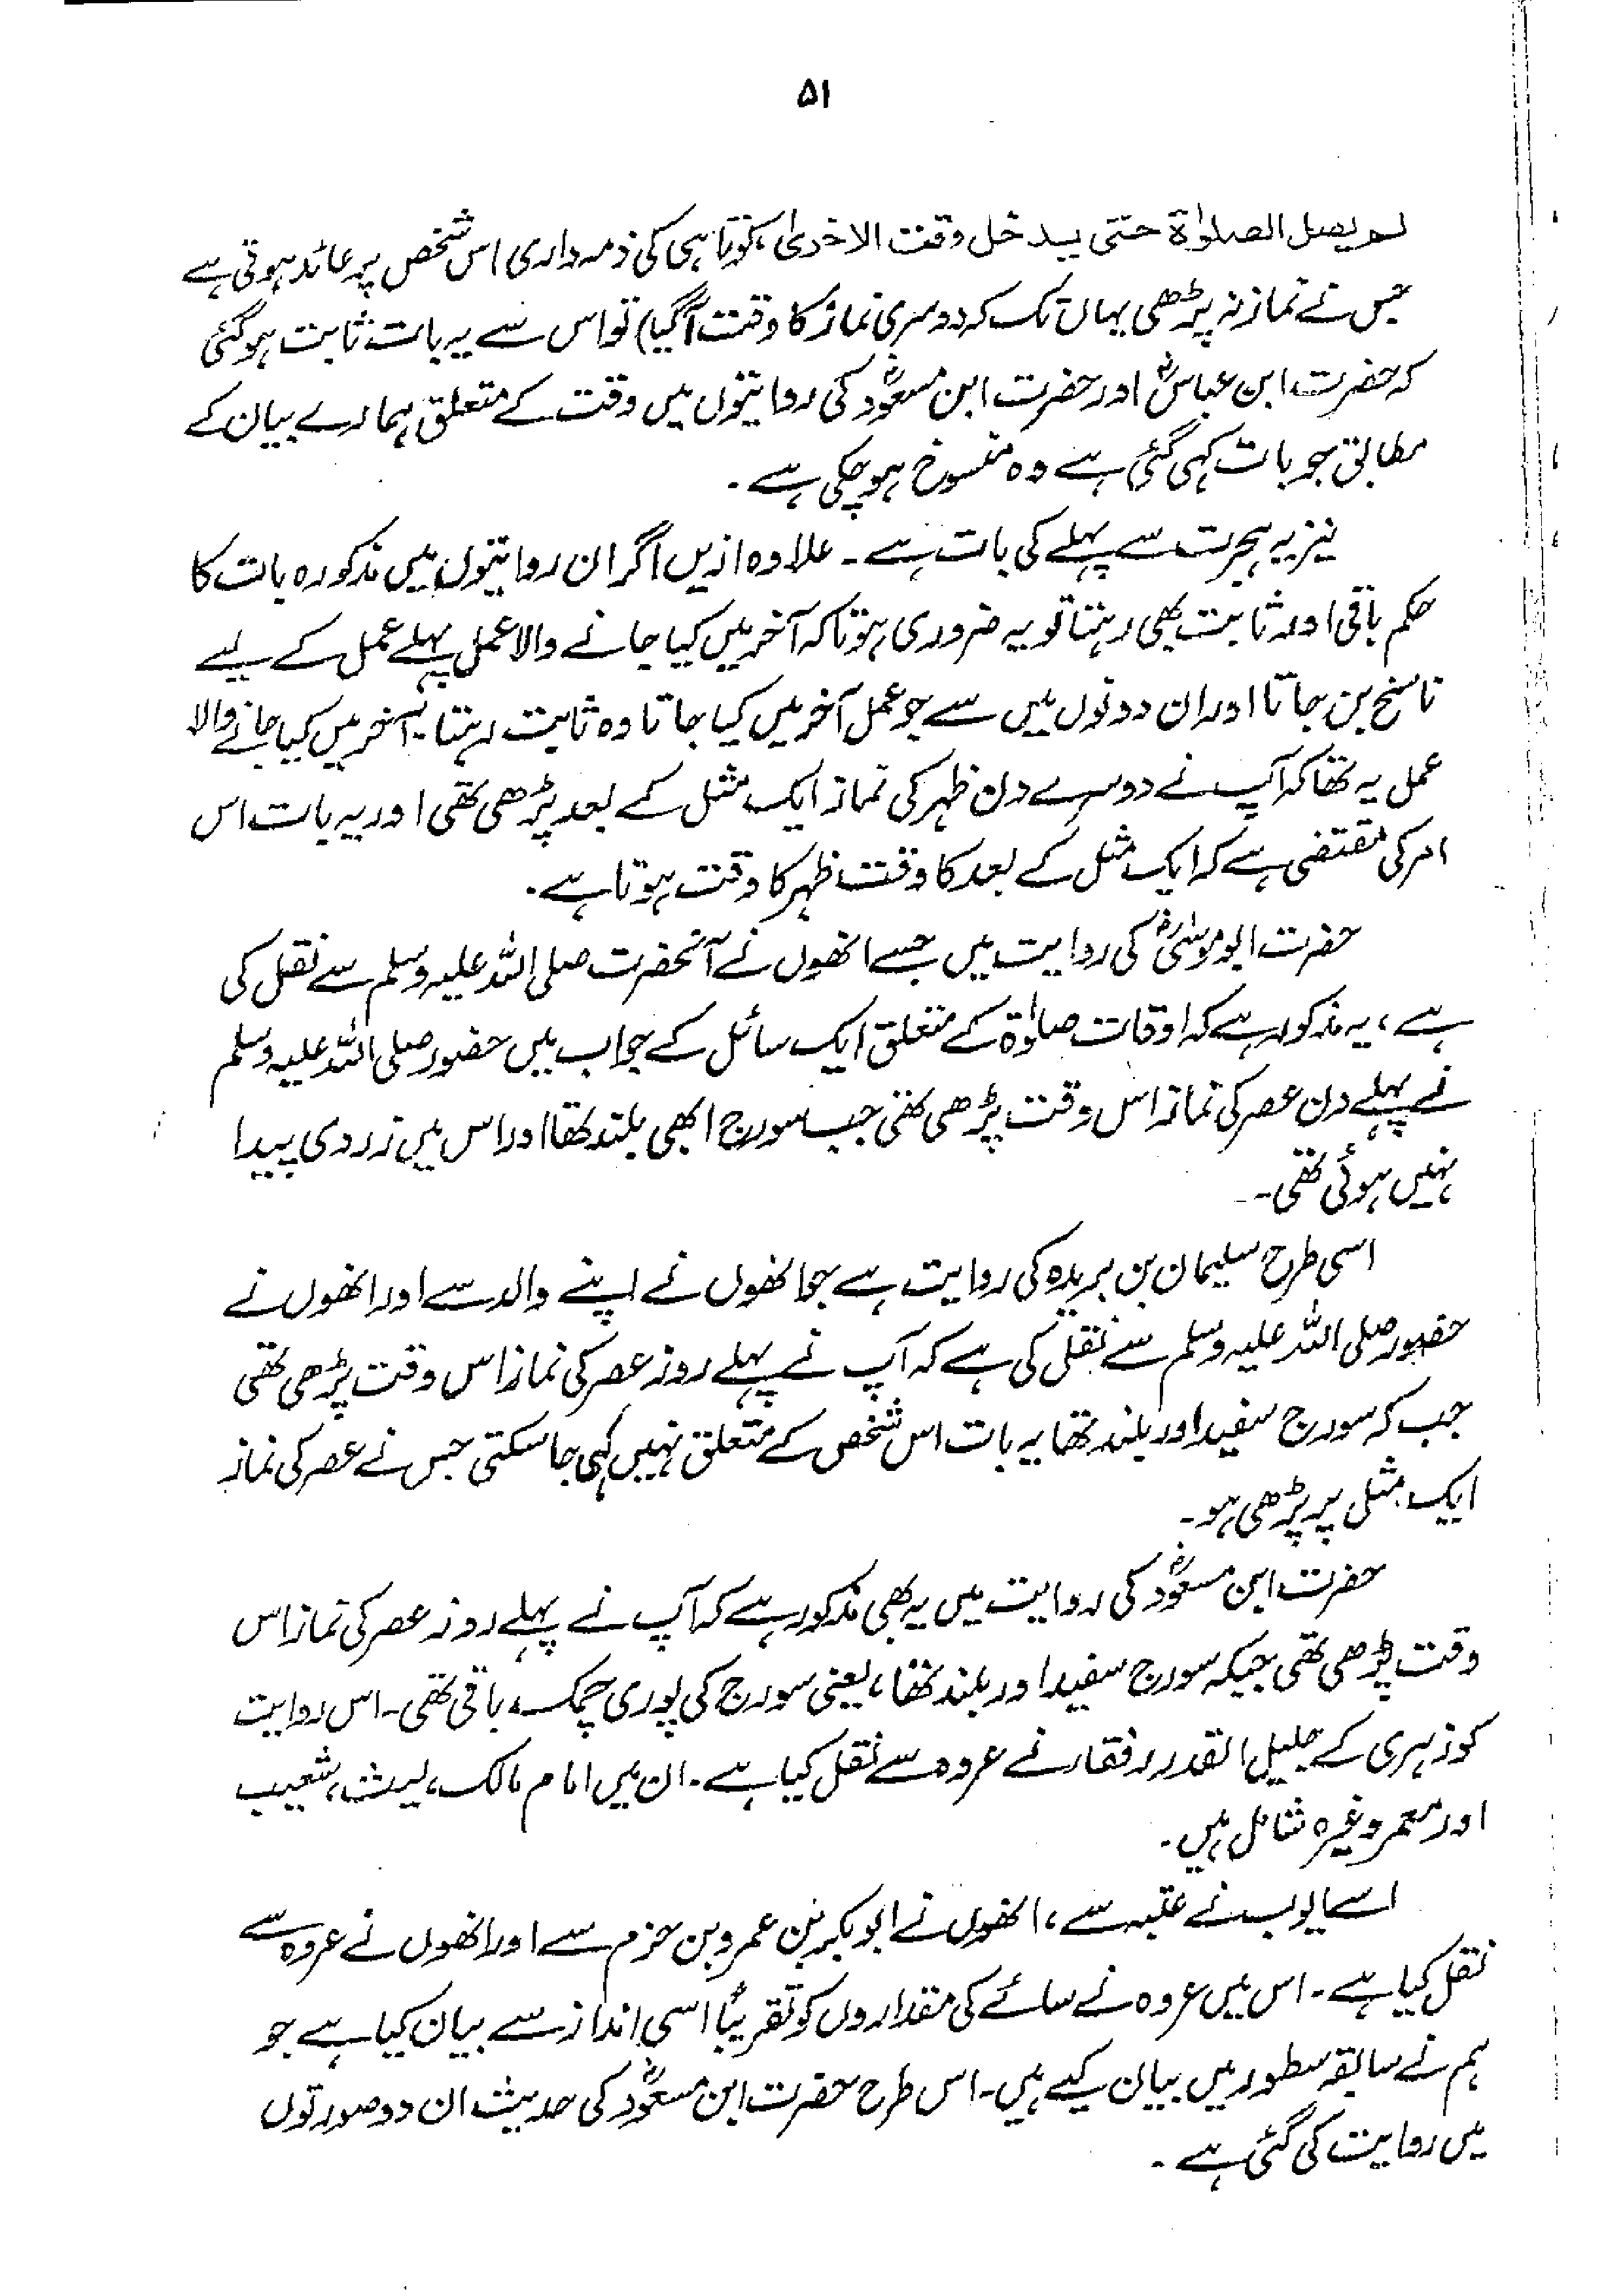 ۵۱
لم یصل الصلوٰۃ حتی یدخل وقت الاخریٰ، کوتاہی کی ذمہ داری اس شخص پر عائد ہوتی ہے
جس نے نماز نہ پڑھی یہاں تک کہ دوسری نماز کا وقت آگیا) تو اس سے یہ بات ثابت ہوگئی
کہ حضرت ابن عباسؓ اور حضرت ابن مسعودؓ کی روایتوں میں وقت کے متعلق ہمارے بیان کے
مطابق جو بات کہی گئی ہے وہ منسوخ ہوچکی ہے۔
نیز یہ ہجرت سے پہلے کی بات ہے۔ علاوہ ازیں اگر ان روایتوں میں مذکورہ بات کا
حکم باقی اور ثابت بھی رہتا تو یہ ضروری ہوتا کہ آخر میں کیا جانے والا عمل پہلے عمل کے لیے
ناسخ بن جاتا اور ان دونوں میں سے جو عمل آخر میں کیا جاتا وہ ثابت رہتا۔ آخر میں کیا جانے والا
عمل یہ تھا کہ آپ نے دوسرے دن ظہر کی نماز ایک مثل کے بعد پڑھی تھی اور یہ بات اس
امر کی مقتضی ہے کہ ایک مثل کے بعد کا وقت ظہر کا وقت ہوتا ہے۔
حضرت ابوموسیٰؓ کی روایت میں جسے انھوں نے آنحضرت صلی اللہ علیہ وسلم سے نقل کی
ہے، یہ مذکور ہے کہ اوقات صلوٰۃ کے متعلق ایک سائل کے جواب میں حضور صلی اللہ علیہ وسلم
نے پہلے دن عصر کی نماز اس وقت پڑھی تھی جب سورج ابھی بلند تھا اور اس میں زردی پیدا
نہیں ہوئی تھی۔
اسی طرح سلیمان بن بریدہ کی روایت ہے جو انھوں نے اپنے والد سے اور انھوں نے
حضور صلی اللہ علیہ وسلم سے نقل کی ہے کہ آپ نے پہلے روز عصر کی نماز اس وقت پڑھی تھی
جب کہ سورج سفید اور بلند تھا یہ بات اس شخص کے متعلق نہیں کہی جاسکتی جس نے عصر کی نماز
ایک مثل پر پڑھی ہو۔
حضرت ابن مسعودؓ کی روایت میں یہ بھی مذکور ہے کہ آپ نے پہلے روز عصر کی نماز اس
وقت پڑھی تھی جبکہ سورج سفید اور بلند تھا، یعنی سورج کی پوری چمک باقی تھی۔ اس روایت
کو زہری کے جلیل القدر رفقاء نے عروہ سے نقل کیا ہے۔ ان میں امام مالک، لیث، شعیب
اور معمر وغیرہ شامل ہیں۔
اسے ایوب نے عتبہ سے، انھوں نے ابوبکر بن عمرو بن حزم سے اور انھوں نے عروہ سے
نقل کیا ہے۔ اس میں عروہ نے سائے کی مقداروں کو تقریباً اسی انداز سے بیان کیا ہے جو
ہم نے سابقہ سطور میں بیان کیے ہیں۔ اس طرح حضرت ابن مسعودؓ کی حدیث ان دو صورتوں
میں روایت کی گئی ہے۔